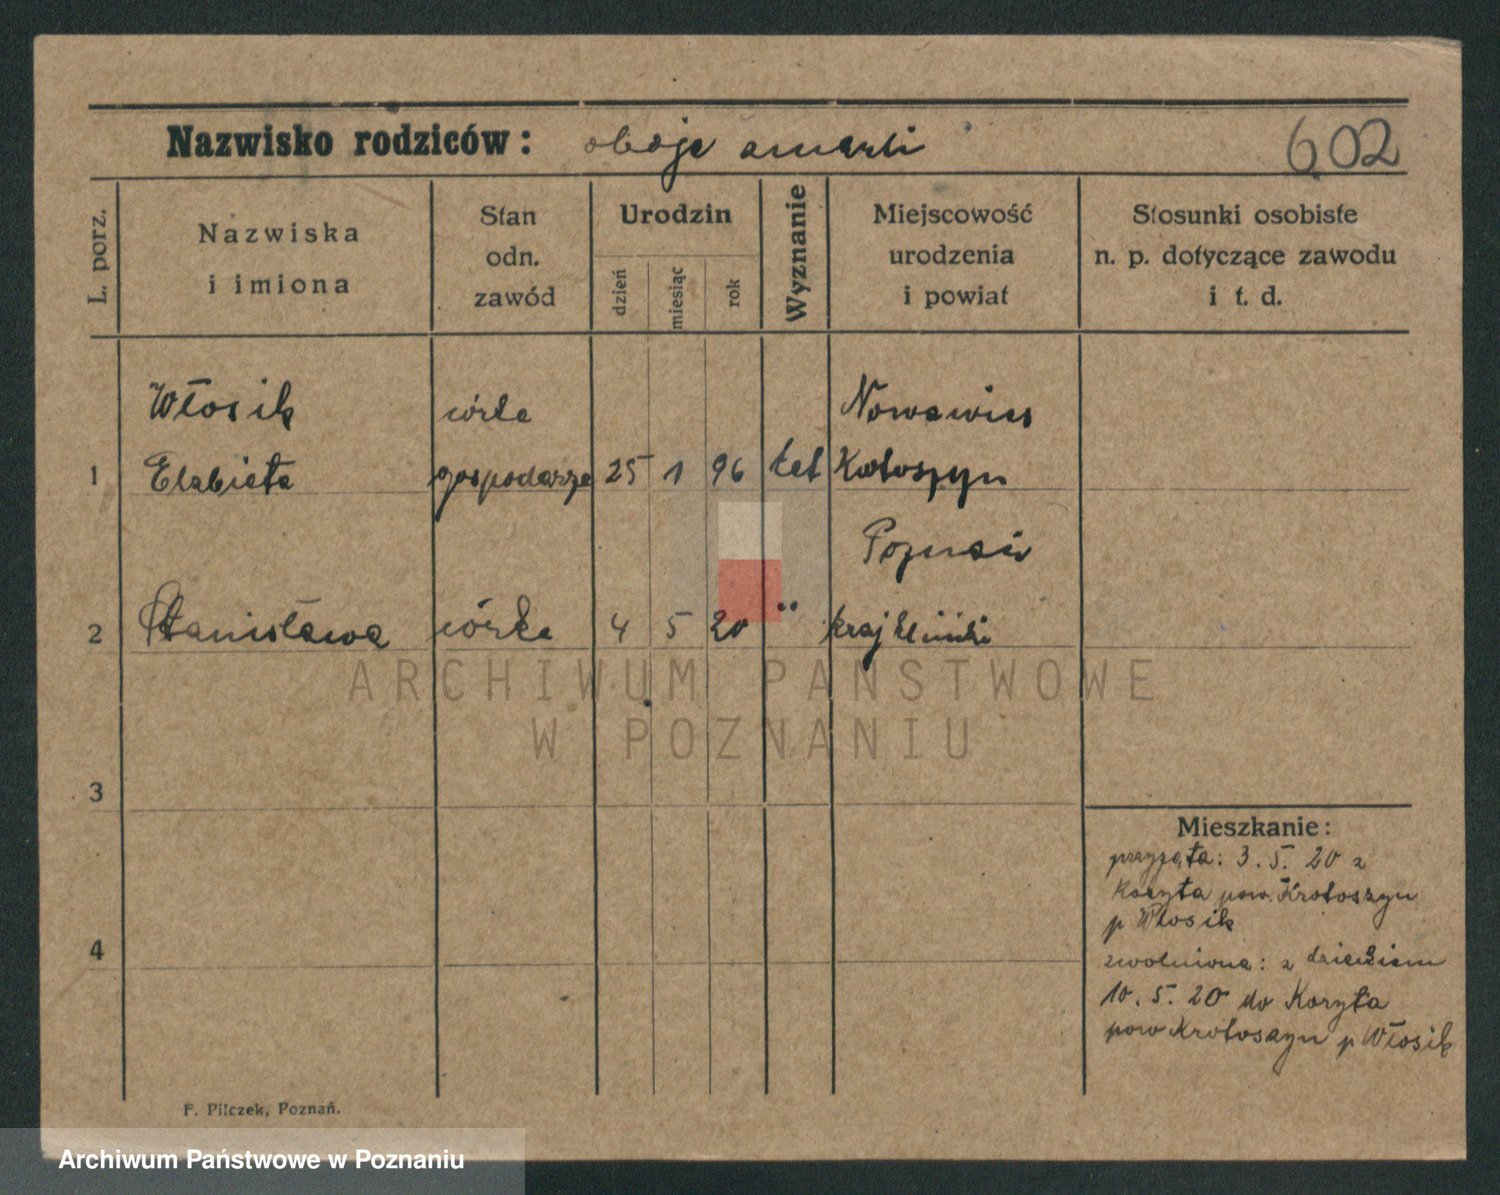 Nazwisko rodziców: oboje umarli 602
L. porz.
Nazwiska
i imiona
Stan
odn.
zawód
Urodzin
dzień
miesiąc
rok
Wyznanie
Miejscowość
urodzenia
i powiat
Stosunki osobiste
n. p. dotyczące zawodu
i t. d.
Włosik córka Nowawieś
1 Elżbieta gospodarza 25 1 96 kat Krotoszyn
Poznań
2 Stanisława córka 4 5 20 " kraj kliniki
3
4
Mieszkanie:
przyjęta: 3. 5. 20 z
Koryta pow. Krotoszyn
p Włosik
zwolniona: z dzieckiem
10. 5. 20 do Koryta
pow Krotoszyn p Włosik
F. Pilczek, Poznań.
ARCHIWUM PAŃSTWOWE
W POZNANIU
Archiwum Państwowe w Poznaniu